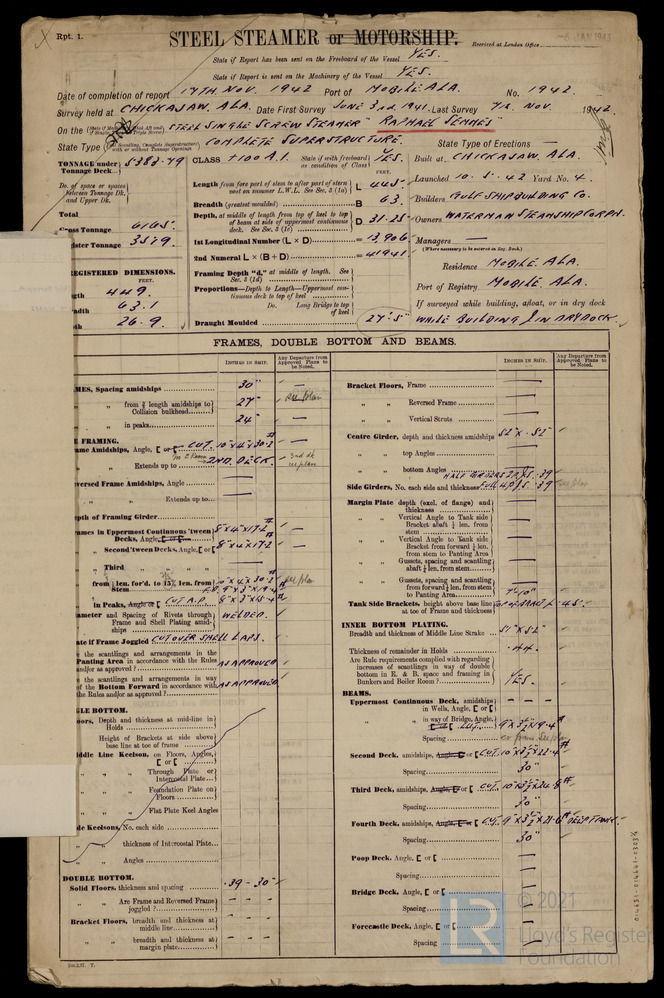 Rpt. 1.
STEEL STEAMER or MOTORSHIP.
Received at London Office
State if Report has been sent on the Freeboard of the Vessel YES.
State if Report is sent on the Machinery of the Vessel YES.
Date of completion of report 17TH NOV. 1942 Port of MOBILE ALA. No. 1942.
Survey held at CHICKASAW, ALA. Date First Survey JUNE 3rd 1941. Last Survey 7th NOV. 1942
On the STEEL SINGLE SCREW STEAMER "RAPHAEL SEMMES"
State Type COMPLETE SUPERSTRUCTURE. State Type of Erections —
TONNAGE under Tonnage Deck 5383.49
Do. of space or spaces between Tonnage Dk. and Upper Dk.
Total
Gross Tonnage 6165.
ister Tonnage 3579.
EGISTERED DIMENSIONS.
FEET.
gth 449.
dth 63.1
th 26.9.
CLASS +100 A.1. State if with freeboard as condition of Class YES.
FEET.
Length from fore part of stem to after part of stern post on summer L.W.L. See Sec. 3 (1a) L 445
Breadth (greatest moulded) B 63.
Depth, at middle of length from top of keel to top of beam at side of uppermost continuous deck. See Sec. 3 (1c) D 31.25
1st Longitudinal Number (L × D) = 13,906
2nd Numeral L × (B + D) = 41941
Framing Depth "d," at middle of length. See Sec. 3 (1d)
Proportions—Depth to Length—Uppermost continuous deck to top of keel
Do. Long Bridge to top of keel
Draught Moulded 27'.5"
Built at CHICKASAW, ALA.
Launched 10.5.42 Yard No. 4.
Builders GULF SHIPBUILDING CO.
Owners WATERMAN STEAMSHIP CORPN.
Managers —
(Where necessary to be entered in Reg. Book.)
Residence MOBILE ALA.
Port of Registry MOBILE ALA.
If surveyed while building, afloat, or in dry dock
WHILE BUILDING & IN DRYDOCK.
FRAMES, DOUBLE BOTTOM AND BEAMS.
INCHES IN SHIP. Any Departure from Approved Plans to be Noted.
MES, Spacing amidships 30" —
" " from ⅗ length amidships to Collision bulkhead 27" see plan
" " in peaks 24" —
E FRAMING.
ame Amidships, Angle, [ or [ CUT 10"x4"x30.2# —
" " Extends up to 2ND DECK. 2nd dk see plan
versed Frame Amidships, Angle —
" " Extends up to —
epth of Framing Girder
rames in Uppermost Continuous 'tween Decks, Angle, [ or [ 8"x4"x17.2#
" Second 'tween Decks, Angle, [ or [ 8"x4"x17.2#
" Third " " " —
" from ⅕ len. for'd. to 15% len. from Stem 10"x4"x30.2# see plan
" in Peaks, Angle or [ CUT A.P.
ameter and Spacing of Rivets through Frame and Shell Plating amidships WELDED.
ate if Frame Joggled CUT OVER SHELL LAPS.
the scantlings and arrangements in the Panting Area in accordance with the Rules and/or as approved? AS APPROVED
the scantlings and arrangements in way of the Bottom Forward in accordance with the Rules and/or as approved? AS APPROVED
GLE BOTTOM.
oors, Depth and thickness at mid-line in Holds
Height of Brackets at side above base line at toe of frame
iddle Line Keelson, on Floors, Angles, [ or [
" " Through Plate or Intercostal Plate
" " Foundation Plate on Floors
" " Flat Plate Keel Angles
de Keelsons, No. each side
" " thickness of Intercostal Plate
" " Angles
DOUBLE BOTTOM.
Solid Floors, thickness and spacing .39 - 30"
" " Are Frame and Reversed Frame joggled?
Bracket Floors, breadth and thickness at middle line
" " breadth and thickness at margin plate
INCHES IN SHIP. Any Departure from Approved Plans to be Noted.
Bracket Floors, Frame —
" " Reversed Frame —
" " Vertical Struts —
Centre Girder, depth and thickness amidships 52" x .52
" " top Angles —
" " bottom Angles —
Side Girders, No. each side and thickness see plan
Margin Plate depth (excl. of flange) and thickness
" " Vertical Angle to Tank side Bracket abaft ¼ len. from stem
" " Vertical Angle to Tank side Bracket from forward ¼ len. from stem to Panting Area
" " Gussets, spacing and scantling abaft ¼ len. from stem
" " Gussets, spacing and scantling from forward ¼ len. from stem to Panting Area
Tank Side Brackets, height above base line at toe of Frame and thickness
INNER BOTTOM PLATING.
Breadth and thickness of Middle Line Strake 51" x .52
Thickness of remainder in Holds .44.
Are Rule requirements complied with regarding increases of scantlings in way of double bottom in E. & B. space and framing in Bunkers and Boiler Room? YES.
BEAMS.
Uppermost Continuous Deck, amidships in Wells, Angle, [ or [
" " in way of Bridge, Angle, [ or [
Spacing
Second Deck, amidships, Angle, [ or [ CUT 10"x3½"x22.4#
Spacing 30"
Third Deck, amidships, Angle, [ or [ CUT. 10"x3½"x24.8#
Spacing 30"
Fourth Deck, amidships, Angle, [ or [ CUT 9"x3½"x21.6# DEEP TANK.
Spacing 30"
Poop Deck, Angle, [ or [ —
Spacing —
Bridge Deck, Angle, [ or [ —
Spacing —
Forecastle Deck, Angle, [ or [ —
Spacing —
© 2021
Lloyd's Register
Foundation
LR